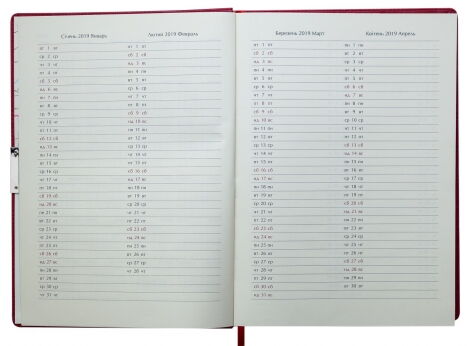 Січень 2019 Январь
вт 1 вт
ср 2 ср
чт 3 чт
пт 4 пт
сб 5 сб
нд 6 вс
пн 7 пн
вт 8 вт
ср 9 ср
чт 10 чт
пт 11 пт
сб 12 сб
нд 13 вс
пн 14 пн
вт 15 вт
ср 16 ср
чт 17 чт
пт 18 пт
сб 19 сб
нд 20 вс
пн 21 пн
вт 22 вт
ср 23 ср
чт 24 чт
пт 25 пт
сб 26 сб
нд 27 вс
пн 28 пн
вт 29 вт
ср 30 ср
чт 31 чт
Лютий 2019 Февраль
пт 1 пт
сб 2 сб
нд 3 вс
пн 4 пн
вт 5 вт
ср 6 ср
чт 7 чт
пт 8 пт
сб 9 сб
нд 10 вс
пн 11 пн
вт 12 вт
ср 13 ср
чт 14 чт
пт 15 пт
сб 16 сб
нд 17 вс
пн 18 пн
вт 19 вт
ср 20 ср
чт 21 чт
пт 22 пт
сб 23 сб
нд 24 вс
пн 25 пн
вт 26 вт
ср 27 ср
чт 28 чт
Березень 2019 Март
пт 1 пт
сб 2 сб
нд 3 вс
пн 4 пн
вт 5 вт
ср 6 ср
чт 7 чт
пт 8 пт
сб 9 сб
нд 10 вс
пн 11 пн
вт 12 вт
ср 13 ср
чт 14 чт
пт 15 пт
сб 16 сб
нд 17 вс
пн 18 пн
вт 19 вт
ср 20 ср
чт 21 чт
пт 22 пт
сб 23 сб
нд 24 вс
пн 25 пн
вт 26 вт
ср 27 ср
чт 28 чт
пт 29 пт
сб 30 сб
нд 31 вс
Квітень 2019 Апрель
пн 1 пн
вт 2 вт
ср 3 ср
чт 4 чт
пт 5 пт
сб 6 сб
нд 7 вс
пн 8 пн
вт 9 вт
ср 10 ср
чт 11 чт
пт 12 пт
сб 13 сб
нд 14 вс
пн 15 пн
вт 16 вт
ср 17 ср
чт 18 чт
пт 19 пт
сб 20 сб
нд 21 вс
пн 22 пн
вт 23 вт
ср 24 ср
чт 25 чт
пт 26 пт
сб 27 сб
нд 28 вс
пн 29 пн
вт 30 вт